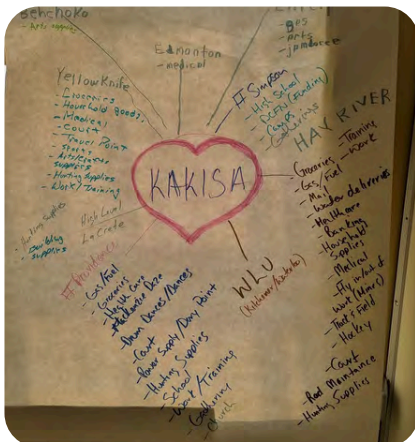 Behchoko
Edmonton
- medical
- gas
- arts
- jamboree
Yellowknife
- Groceries
- Household goods
- Medical
- Court
- Travel Point
- Stores
- Arts/Crafts
supplies
- Hunting Supplies
- Work/Training
Ft Simpson
- High School
- DCFN (Funding)
- Camps
- Gatherings
HAY RIVER
- Training
- Work
- Groceries
- Gas/Fuel
- Mail
- Water deliveries
- Healthcare
- Banking
- Household
Supplies
- Medical
- Fly in/out of
work (Mines)
- Track & Field
- Hockey
- Court
- Road Maintaince
- Hunting Supplies
KAKISA
High Level
La Crete
- Building
supplies
WLU
(Kitchener/Waterloo)
Ft Providence
- Gas/Fuel
- Groceries
- Health Care
- Mackenzie Daze
- Drum Dances/Dances
- Court
- Power Supply/Dory Point
- Hunting Supplies
- School
- Work/Training
- Gathering
- Church